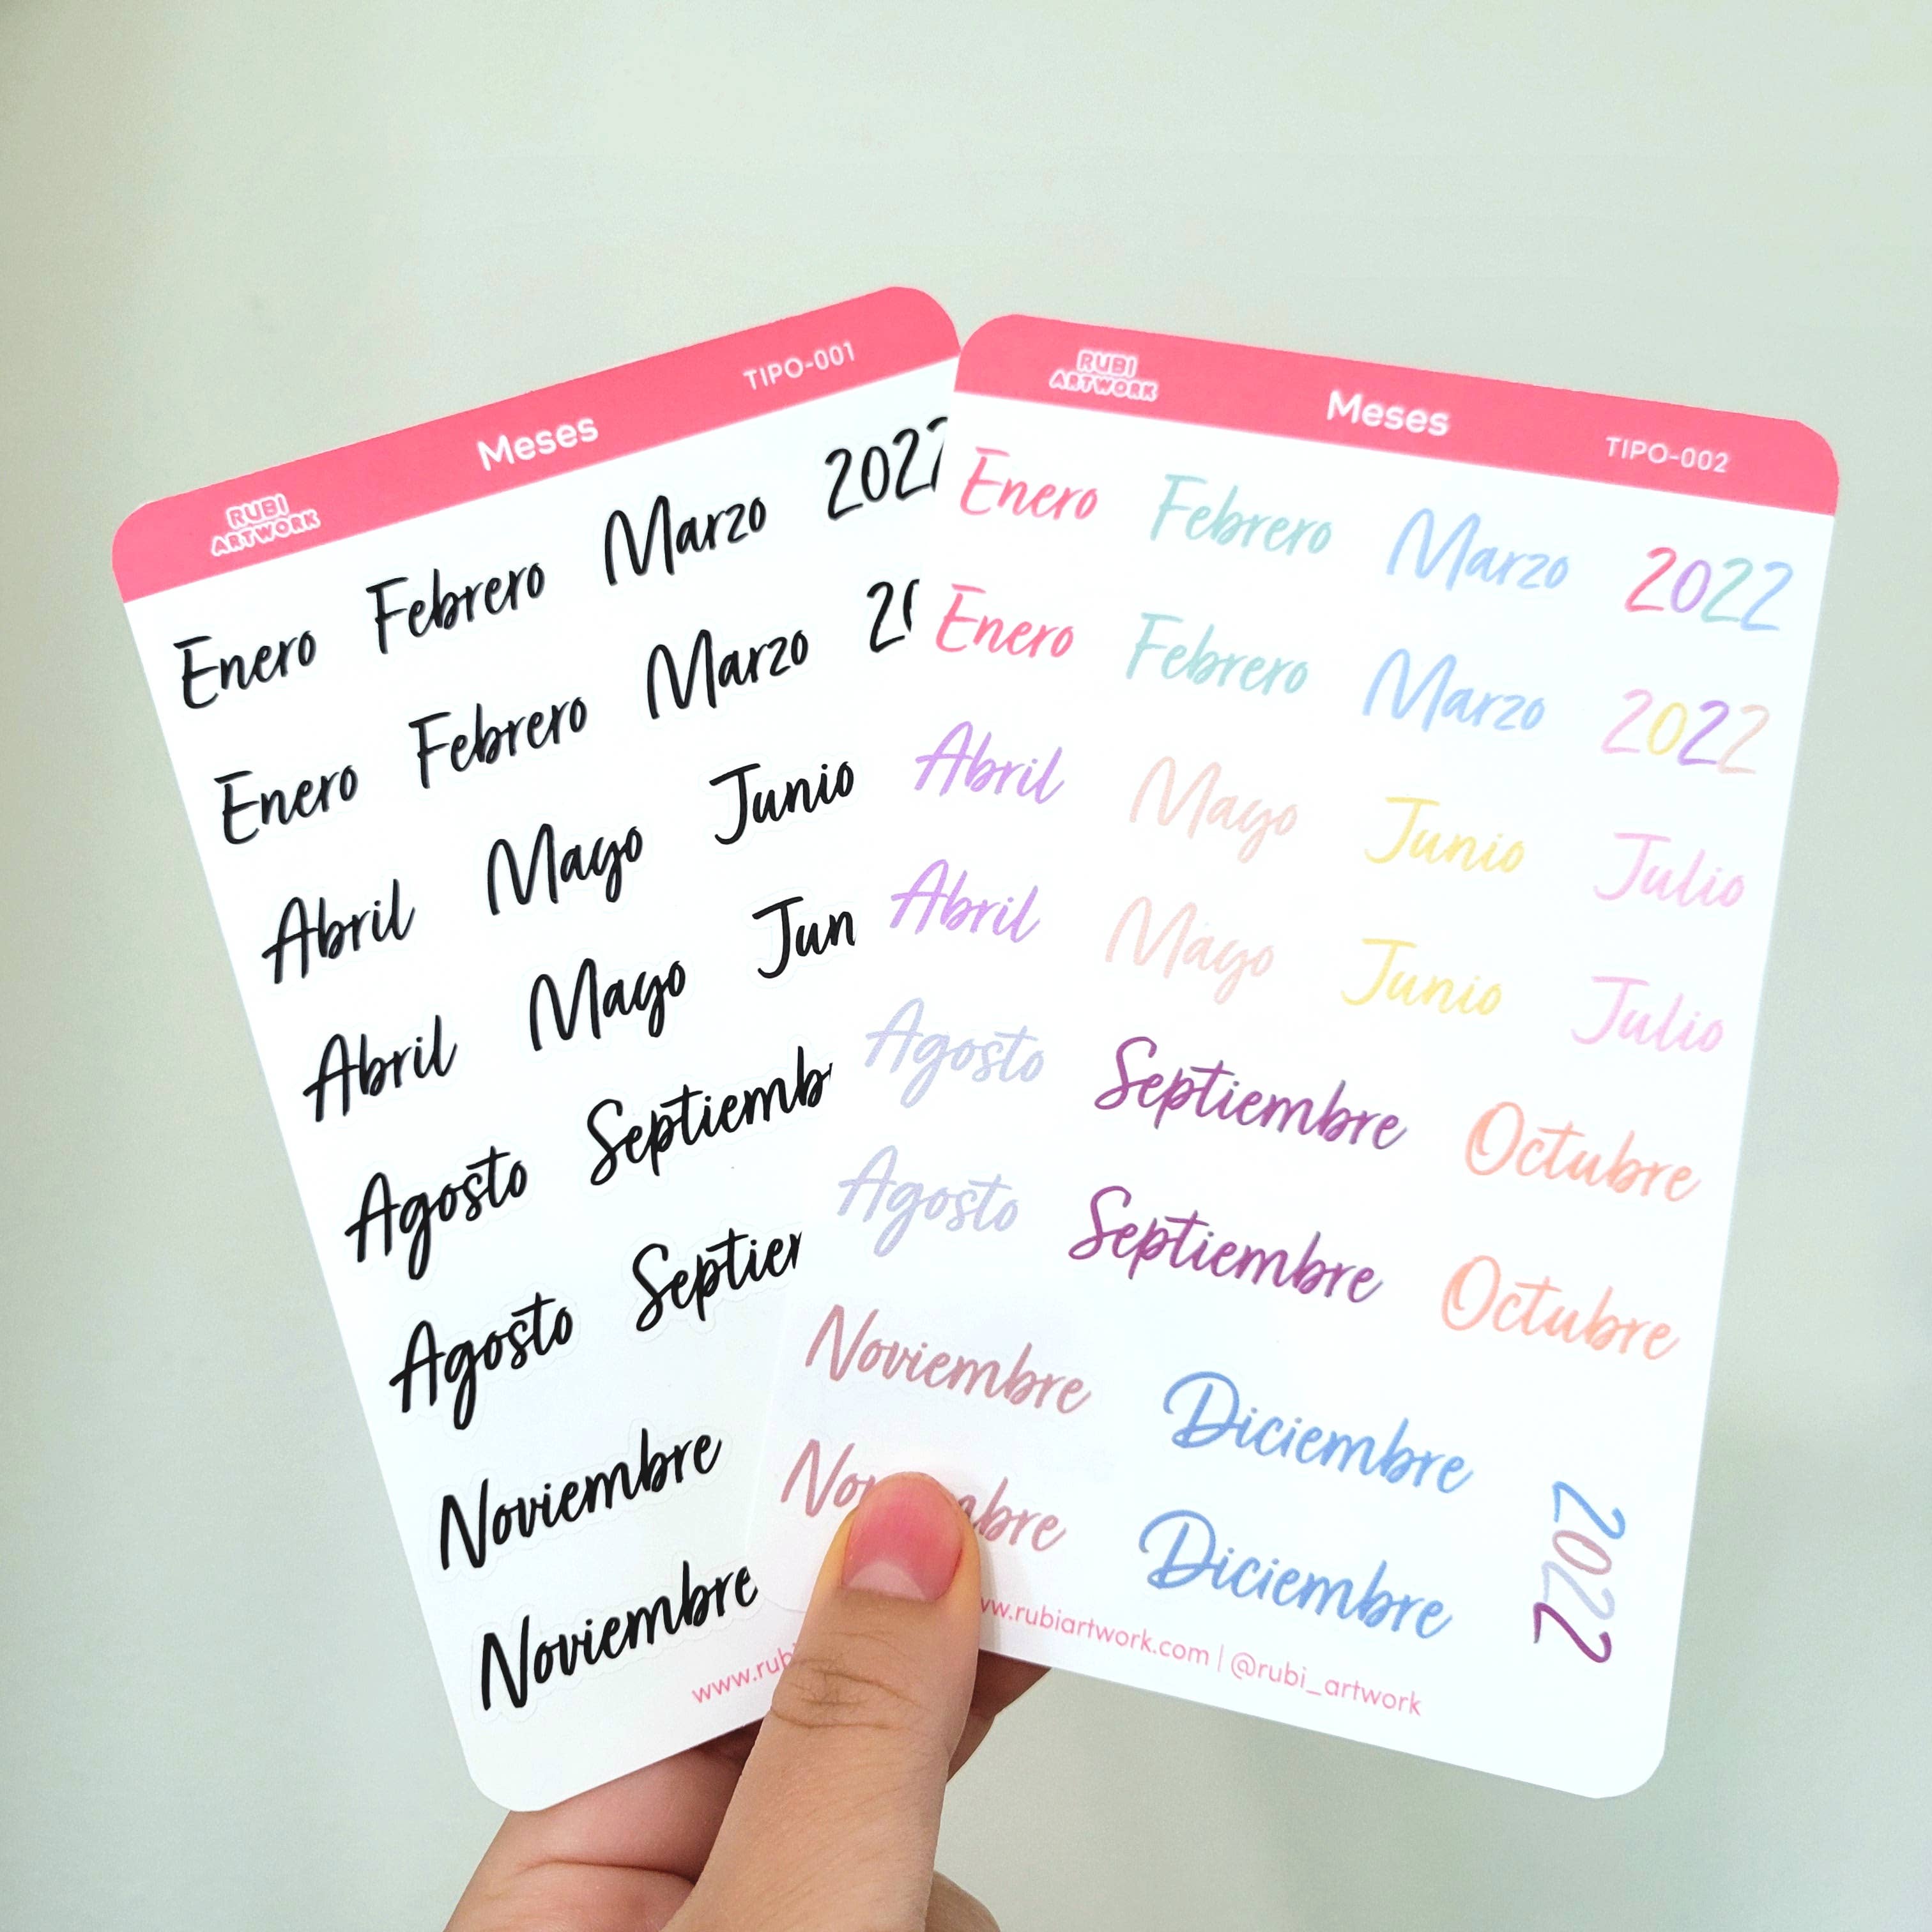 RUBI
ARTWORK
Meses
TIPO-001
Enero Febrero Marzo 2022
Enero Febrero Marzo
Abril Mayo Junio
Abril Mayo Jun
Agosto Septiemb
Agosto Septie
Noviembre
Noviembre
www.rubi
RUBI
ARTWORK
Meses
TIPO-002
Enero Febrero Marzo 2022
Enero Febrero Marzo 2022
Abril Mayo Junio Julio
Abril Mayo Junio Julio
Agosto Septiembre Octubre
Agosto Septiembre Octubre
Noviembre Diciembre
Diciembre
2022
www.rubiartwork.com | @rubi_artwork